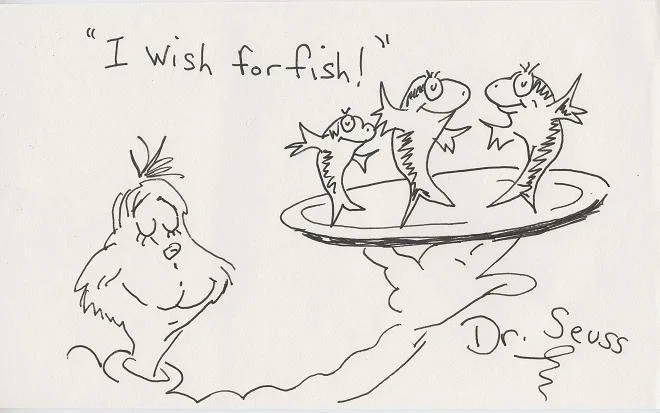 "I wish for fish!"
Dr. Seuss